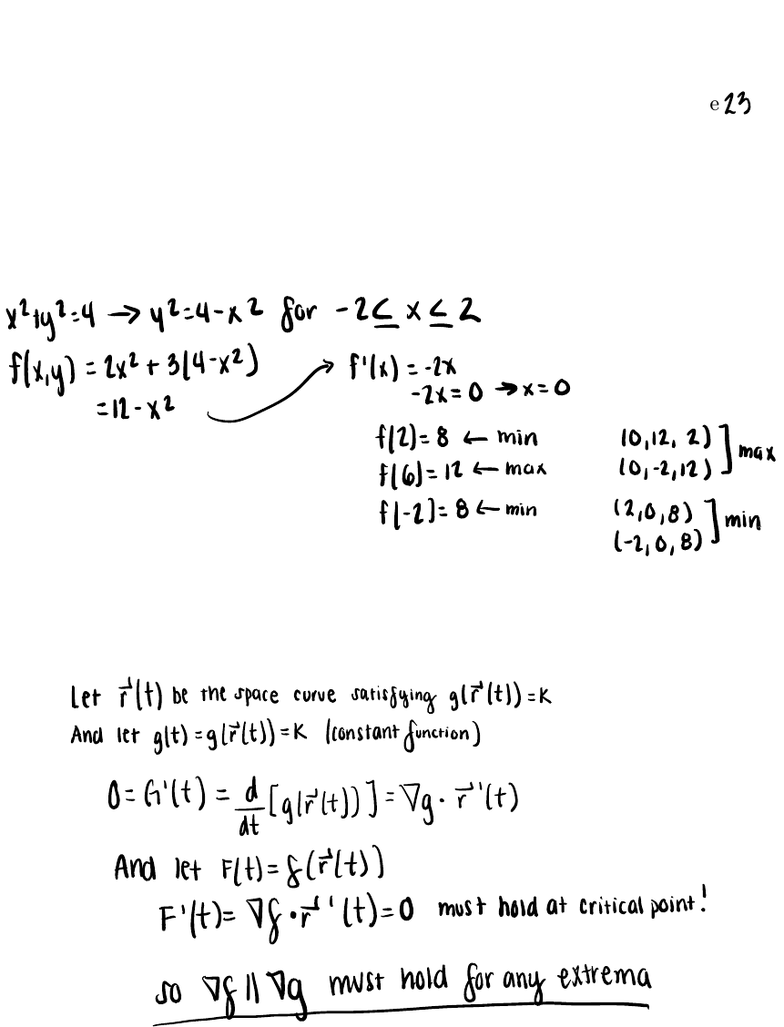 e 23
x²+y²=4 → y²=4-x² for -2 ≤ x ≤ 2
f(x,y) = 2x² + 3(4-x²)
=12-x²
f'(x) = -2x
-2x=0 → x=0
f(2)=8 ← min
f(6)=12 ← max
f(-2)=8 ← min
(0,12, 2)
(0,-2,12)
] max
(2,0,8)
(-2,0,8)
] min
Let r⃗(t) be the space curve satisfying g(r⃗(t))=K
And let g(t)=g(r⃗(t))=K (constant function)
0=G'(t) = d/dt [g(r⃗(t))] = ∇g · r⃗'(t)
And let F(t)=f(r⃗(t))
F'(t)= ∇f · r⃗'(t)=0 must hold at critical point!
so ∇f ∥ ∇g must hold for any extrema